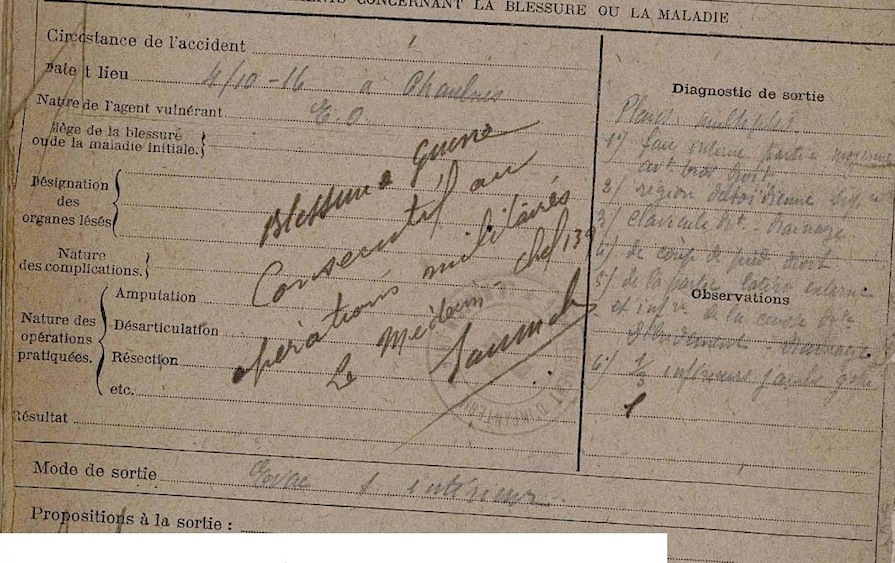 CONCERNANT LA BLESSURE OU LA MALADIE
Circostance de l'accident
Date t lieu 4/10-16 a Chaulnes
Nature de l'agent vulnérant E.O
Siège de la blessure
ou de la maladie initiale.
Désignation
des
organes lésés
Nature
des complications.
Nature des
opérations
pratiquées.
Amputation
Désarticulation
Résection
etc.
Résultat
Blessure Guerre
Consécutif au
opérations militaires
Le Médecin-Chef 139
Mode de sortie Evac intérieur
Propositions à la sortie :
Diagnostic de sortie
Plaies multiples
1°) face interne partie moyenne
bras droit
2/ région deltoïdienne
3/ clavicule dte - drainage
4/ de coup de pied droit
5/ de la partie latéro externe
Observations
et infre de la cuisse dte
Débridement - drainage
6°) 1/3 inférieurs jambe gche